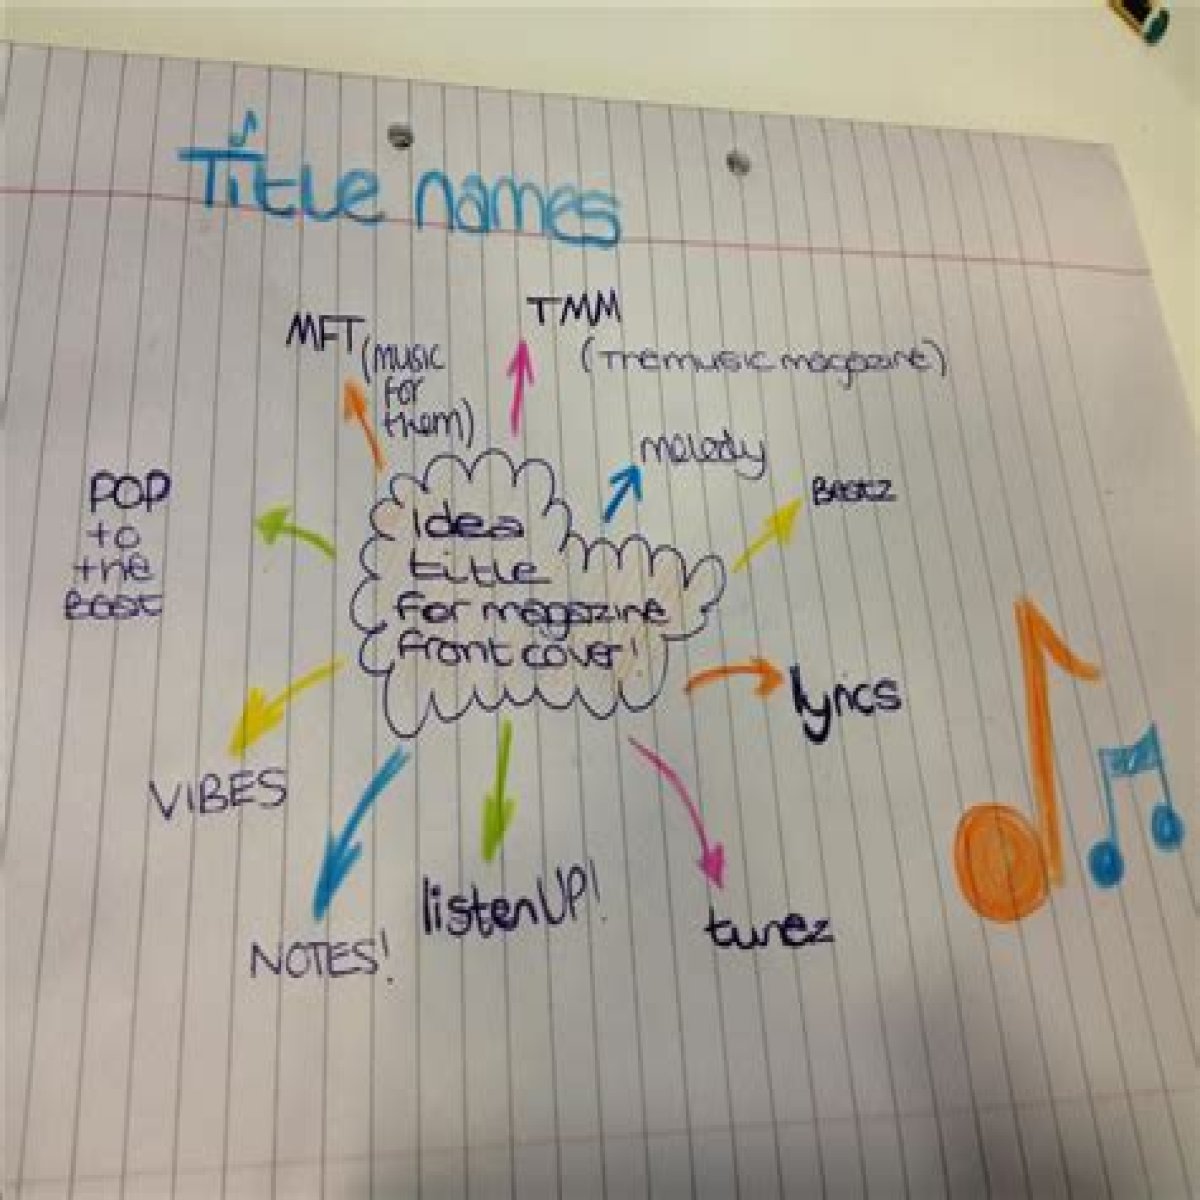 Title names
MFT (music
for
them)
TMM
(The music magazine)
melody
Beatz
POP
to
the
Beat
idea
title
for magazine
front cover!
lyrics
VIBES
NOTES!
listen UP!
tunez